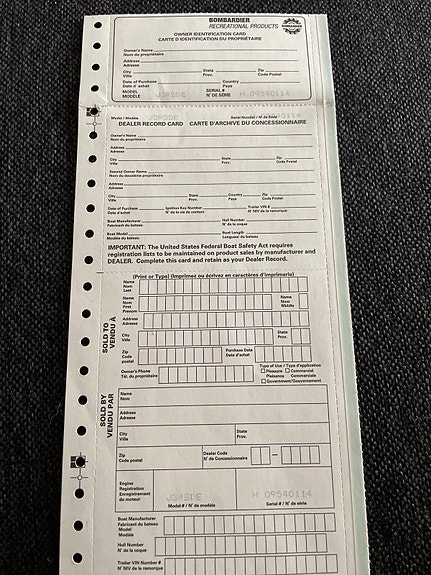 BOMBARDIER
RECREATIONAL PRODUCTS
BOMBARDIER
OWNER IDENTIFICATION CARD
CARTE D'IDENTIFICATION DU PROPRIÉTAIRE
Owner's Name
Nom du propriétaire
Address
Adresse
City State Zip
Ville Prov. Code Postal
Date of Purchase Country
Date d'achat Pays
MODEL J3RSDE SERIAL# H 09540114
MODÈLE N° DE SÉRIE
Model / Modèle J3RSDE Serial Number / N° de Série H 09540114
DEALER RECORD CARD CARTE D'ARCHIVE DU CONCESSIONNAIRE
Owner's Name
Nom du propriétaire
Address
Adresse
City State Zip
Ville Prov. Code Postal
Second Owner Name
Nom du deuxième propriétaire
Address
Adresse
City State Country Zip
Ville Prov. Pays Code Postal
Date of Purchase Ignition Key Number Trailer VIN #
Date d'achat N° de la clé de contact N° NIV de remorque
Boat Manufacturer Hull Number
Fabricant du bateau N° de la coque
Boat Model Boat Length
Modèle du bateau Longueur du bateau
IMPORTANT: The United States Federal Boat Safety Act requires
registration lists to be maintained on product sales by manufacturer and
DEALER. Complete this card and retain as your Dealer Record.
(Print or Type) (Imprimez ou écrivez en caractères d'imprimerie)
SOLD TO
VENDU À
Name
Nom
Last
Name Name
Nom Nom
First Middle
Prenom
Address
Adresse
City State
Ville Prov.
Zip Purchase Date
Code Date d'achat
postal
Owner's Phone
Tél. du propriétaire
Type of Use / Type d'application
Pleasure Commercial
Plaisance Commerciale
Government/Gouvernement
SOLD BY
VENDU PAR
Name
Nom
Address
Adresse
City State
Ville Prov.
Zip Dealer Code
Code postal N° de Concessionnaire
Engine
Registration
Enregistrement
du moteur
J3RSDE H 09540114
Model# / N° de modèle Serial # / N° de série
Boat Manufacturer
Fabricant du bateau
Model
Modèle
Hull Number
N° de la coque
Trailer VIN Number #
N° NIV de la remorque